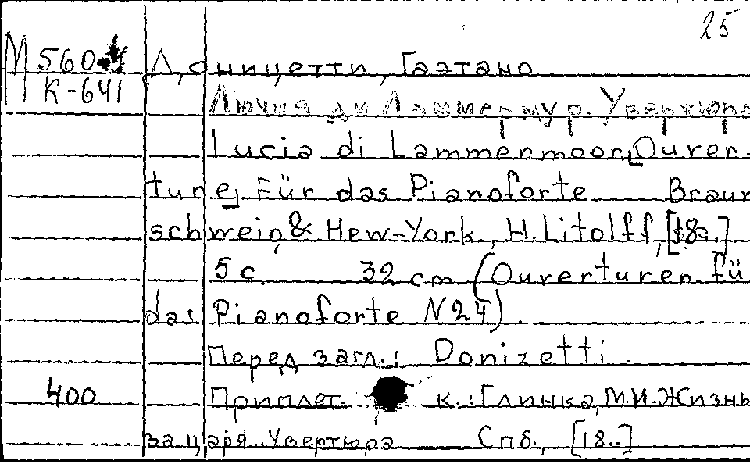 25
М 560-4 Доницетти, Гаэтано
К-641
Лючия ди Ламмермур. Увертюра
Lucia di Lammermoor[Ouver-
ture] für das Pianoforte Braun
schweig & New-York, H. Litolff, [18..]
5 с 32 cm (Ouverturen fü
das Pianoforte N 24)
Перед загл.: Donizetti
400 Приплет. к.: Глинка, М.И. Жизнь
за царя. Увертюра Спб., [18..]